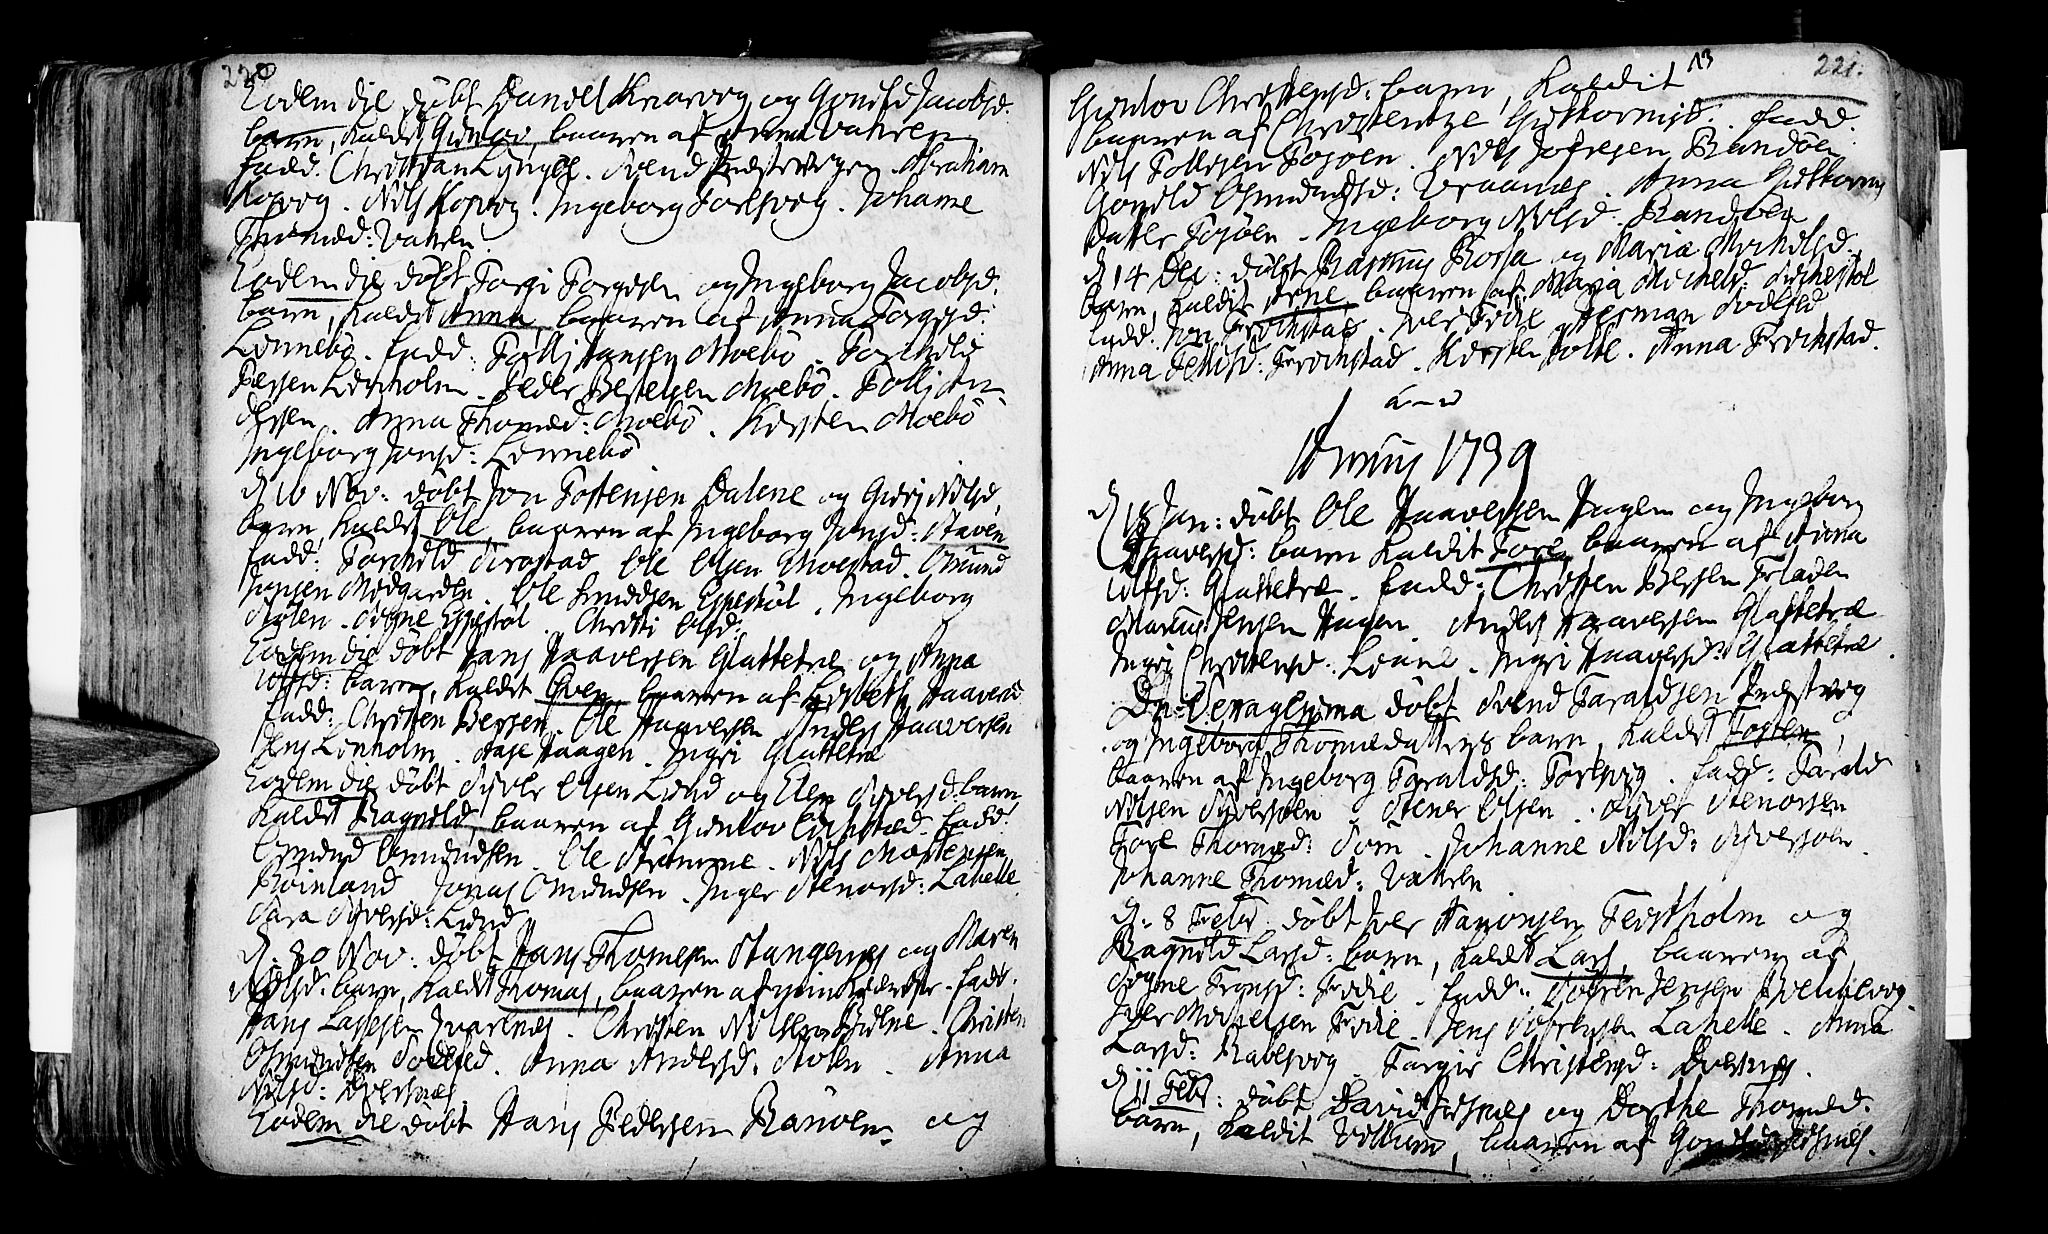 220
Eodem die döbt Daniel Knarvog og Gonild Jacobsd:
barn, kaldet Gunlov, baaren af Anna Vatnen
fadd. Christian Lyngye. Svend Indstevogen. Abraham
Kopvog. Nils Kopvog. Ingeborg Torlsvog. Johanne
Thomæd: Vatnen.
Eodem die döbt Torgi Torgisen og Ingeborg Jacobsd:
barn, kaldet Anna, baaren af Anna Torgisd:
Lonnebö. fadd: Tollj Hansen Moebö. Torkield
Bessen Lonholm. Peder Bessesen Moebö. Tollj An-
dersen. Anna Thomæd: Moebö. Kirsten Moebö
Ingeborg Jonsd: Lonnebö
d 16 Nov: döbt Jon Tostensen Dalene og Guri Nilsd,
barn, kaldet Ole, baaren af Ingeborg Jonsd: Staven
fadd: Torkield Ole Olsen Moestad. Osmund
Jonsen Modgarden. Ole Knudsen Espestöl. Ingeborg
Stölen. Signe Espestöl. Christi Olsd:
Eodem die döbt Hans Haaversen Glattetre og Anna
Ulfsd: barn, kaldet Even baaren af Lisbeth Haaversd
fadd: Christen Bersen. Ole Haaversen Anders Haaversen
Jens Lonholm. Aase Haagen. Ingri Glattetre
Eodem die döbt Siver Olsen Lund og Elen Siversd: barn
kaldet Ragnild, baaren af Gunlov fadd:
Osmund Omundsen. Ole Strömme. Nils Mortensen
Roinland Jonas Omundsen. Inger Stenersd: Labelle
Sara Siversd: Lund
d: 30 Nov: döbt Hans Thomesen Stangenes og Maren
Nilsd: barn, kaldet Thomas, baaren af min fadd.
Hans Lassesen Ivarsnes. Christen Nilsen. Christen
Osmundsen Anna Andersd: Stölen. Anna
Nilsd: Dversnes
Eodem die döbt Hans Pedersen Randöen og
221.
Gunlov Christensd: barn, kaldit
baaren af Christentze Guttormsd: fadd:
Nils Tollesen Fosöen. Nils Tofresen Randöen
Gonild Osmundsd: Vraanes. Anna Guttorms
datter Fosöen. Ingeborg Nilsd: Randöen
d 14 Dec: döbt Rasmus Rossa og Maria Michelsd.
barn, kaldit Arne baaren af Maria Michelsd:
fadd: Jon Frikstad. Iver Frdie Herman
Anna Frikstad. Kirsten Holte. Anna Frikstad.
Annus 1739
d 18 Jan: döbt Ole Haaversen Hagen og Ingeborg
Haaversd: barn kaldit Tore, baaren af Anna
Ulfsd: Glattetre. fadd: Christen Bessen Fladen
Marcus Jensen Hagen. Anders Haaversen Glattetræ
Ingri Christensd: Lonne. Ingri Haaversd: Glattetræ.
Dn: Sexagesima döbt Svend Taraldsen Indstvog
og Ingeborg Thomædatters barn, kaldet Tosten,
baaren af Ingeborg Taraldsd: Torlsvig. fadd: Tarald
Nilsen Siversöen. Stener Olsen. Siver Stenersen
Tore Thomæd: Tom. Johanne Nilsd: Siversöen.
Johanne Thomæd: Vatnen
d. 8 Febr. döbt Iver Haagensen Ferstholm og
Ragnild Larsd: barn, kaldet Lars, baaren af
Signe Tronsd: Frdie. fadd: Sören Jensen
Iver Mortensen Frdie. Jens Labelle. Anna
Larsd: Rabesvog. Torgier Christensd: Dversnes.
d 11 Febr: döbt David og Dorthe Thomæd.
barn, kaldit Villum, baaren af Gonild